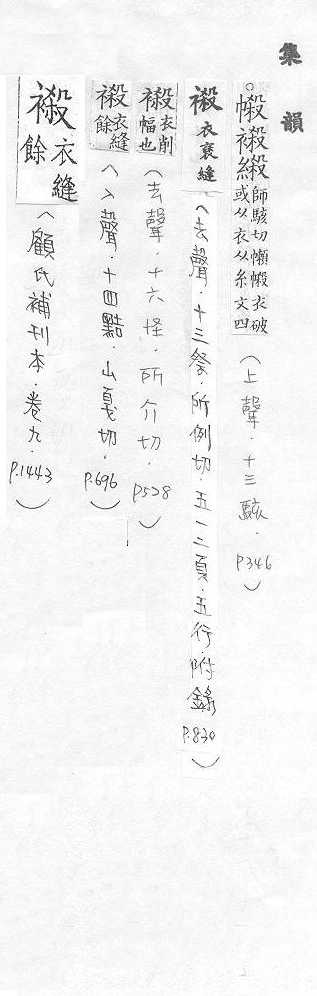 集韻
○㡜𧜁䌰師駭切㡜衣破或从衣从糸文四(上聲.十三駭.P.346)
𧜁衣衺縫(去聲.十三祭.所例切.五一二頁.五行.附錄P.830)
𧜁衣削幅也(去聲.十六怪.所介切.P528)
𧜁衣縫餘(入聲.十四黠.山戛切.P.696)
𧜁衣縫餘(顧氏補刊本.卷九.P.1443)